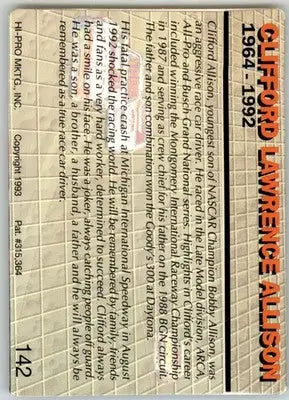 CLIFFORD LAWRENCE ALLISON
1964 - 1992
Clifford Allison, youngest son of NASCAR Champion Bobby Allison, was
an aggressive race car driver. He raced in the Late Model division, ARCA,
All-Pro and Busch Grand National series. Highlights in Clifford's career
included winning the Montgomery International Raceway Championship
in 1987 and serving as crew chief for his father on the 1988 BGN circuit.
The father and son combination won the Goody's 300 at Daytona.
His fatal practice crash at Michigan International Speedway in August
1992 shocked the racing world. He will be remembered by family, friends
and fans as a very hard worker, determined to succeed. Clifford always
had a smile on his face. He was a joker, always catching people off guard.
He was a son, a brother, a husband, a father and he will always be
remembered as a true race car driver.
HI-PRO MKTG, INC. Copyright 1993 Pat. #315,364 142